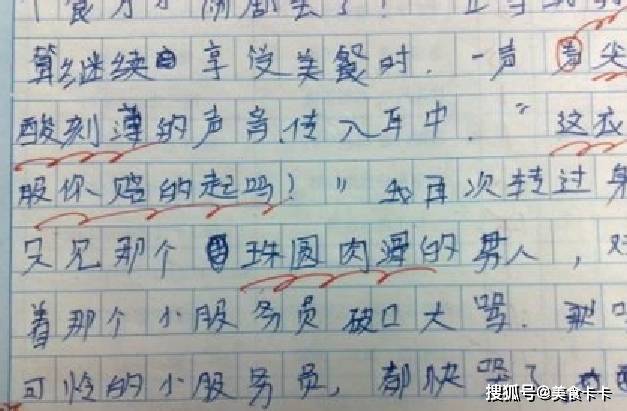 算继续享受美餐时，一声尖
酸刻薄的声音传入耳中，"这衣
服你赔的起吗！"我再次转过身
又见那个珠圆肉润的男人，对
着那个小服务员破口大骂，那
可怜的小服务员，都快哭了
搜狐号@美食卡卡